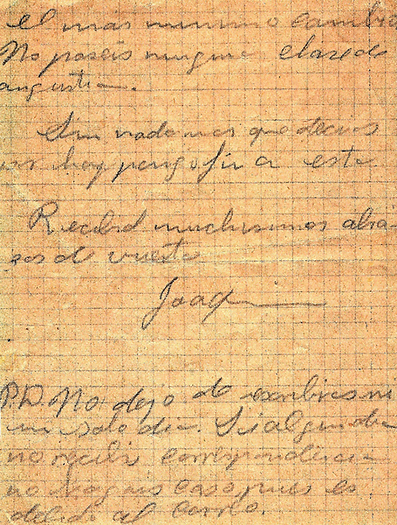 el mas minimo cambio
No paseis ninguna clase de
angustia.
Sin nada mas que deciros
os hoy pongo fin a esta
Recibid muchisimos abra-
zos d vuestro
Joaq
P.D. No dejo de escribiros ni
un solo dia. Si algun dia
no recibis correspondencia
no hagais caso pues es
debido al correo.